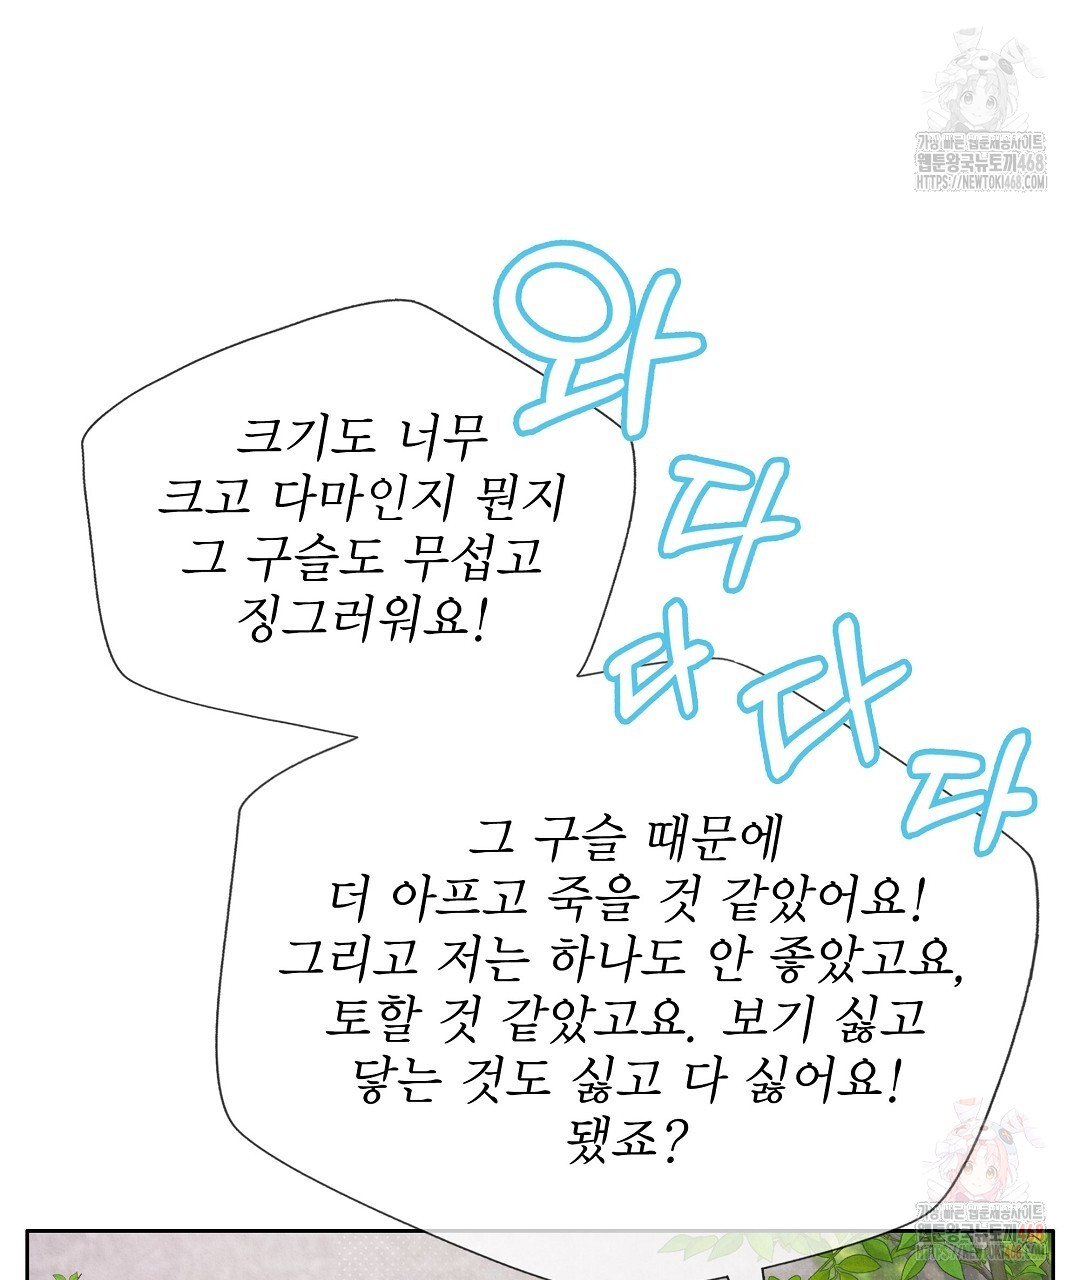 가장 빠른 웹툰제공사이트,
웹툰왕국뉴토끼468
HTTPS://NEWTOKI468.COM
와
다
다
다
다
크기도 너무
크고 다마인지 뭔지
그 구슬도 무섭고
징그러워요!
그 구슬 때문에
더 아프고 죽을 것 같았어요!
그리고 저는 하나도 안 좋았고요,
토할 것 같았고요. 보기 싫고
닿는 것도 싫고 다 싫어요!
됐죠?
가장 빠른 웹툰제공사이트
웹툰왕국뉴토끼468
HTTPS://NEWTOKI468.COM